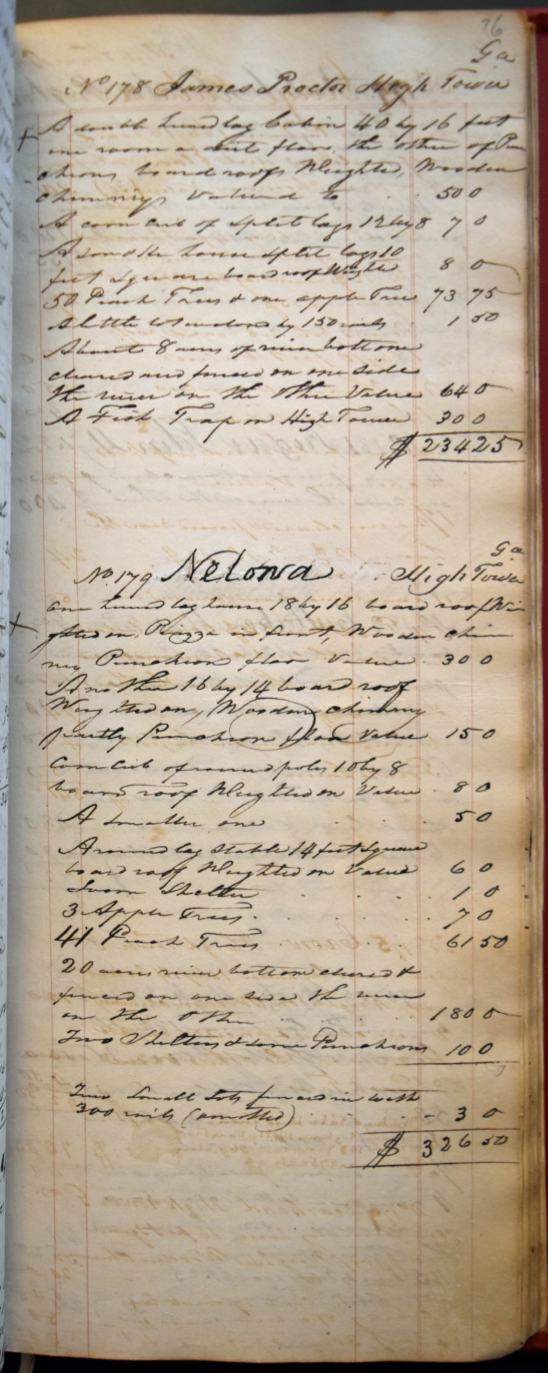 76
Ga
No 178 James Proctor High Tower
A double hewed log Cabin 40 by 16 feet
one room a dirt floor, the other of Pun
cheons board roofs Weighted, Wooden
Chimneys Valued to 50 0
A corn crib of split logs 12 by 8 7 0
A smoke house split logs 10
feet square board roof Weighted 8 0
50 Peach Trees & one apple Tree 73 75
A little lot by 150 rails 1 50
About 8 acres of river bottom
cleared and fenced on one side
the river on the other Value 64 0
A Fish Trap on High Tower 30 0
$ 234 25
Ga
No 179 Nelowa High Tower
one hewed log house 18 by 16 board roof Wei
ghted on, Piazza in front, Wooden Chim
ney Puncheon floor Value 30 0
Another 16 by 14 board roof
Weighted on, Wooden Chimney
partly Puncheon floor Value 15 0
Corn Crib of round poles 10 by 8
board roof Weighted on Value 8 0
A Smaller one 5 0
A round log Stable 14 feet Square
board roof Weighted on Value 6 0
Loom Shelter 1 0
3 Apple Trees 7 0
41 Peach Trees 61 50
20 acres river bottom cleared &
fenced on one side the river
on the other 180 0
Two Shelters & some Puncheons 10 0
Two Small Lots fenced in with
300 rails (omitted) 3 0
$ 326 50